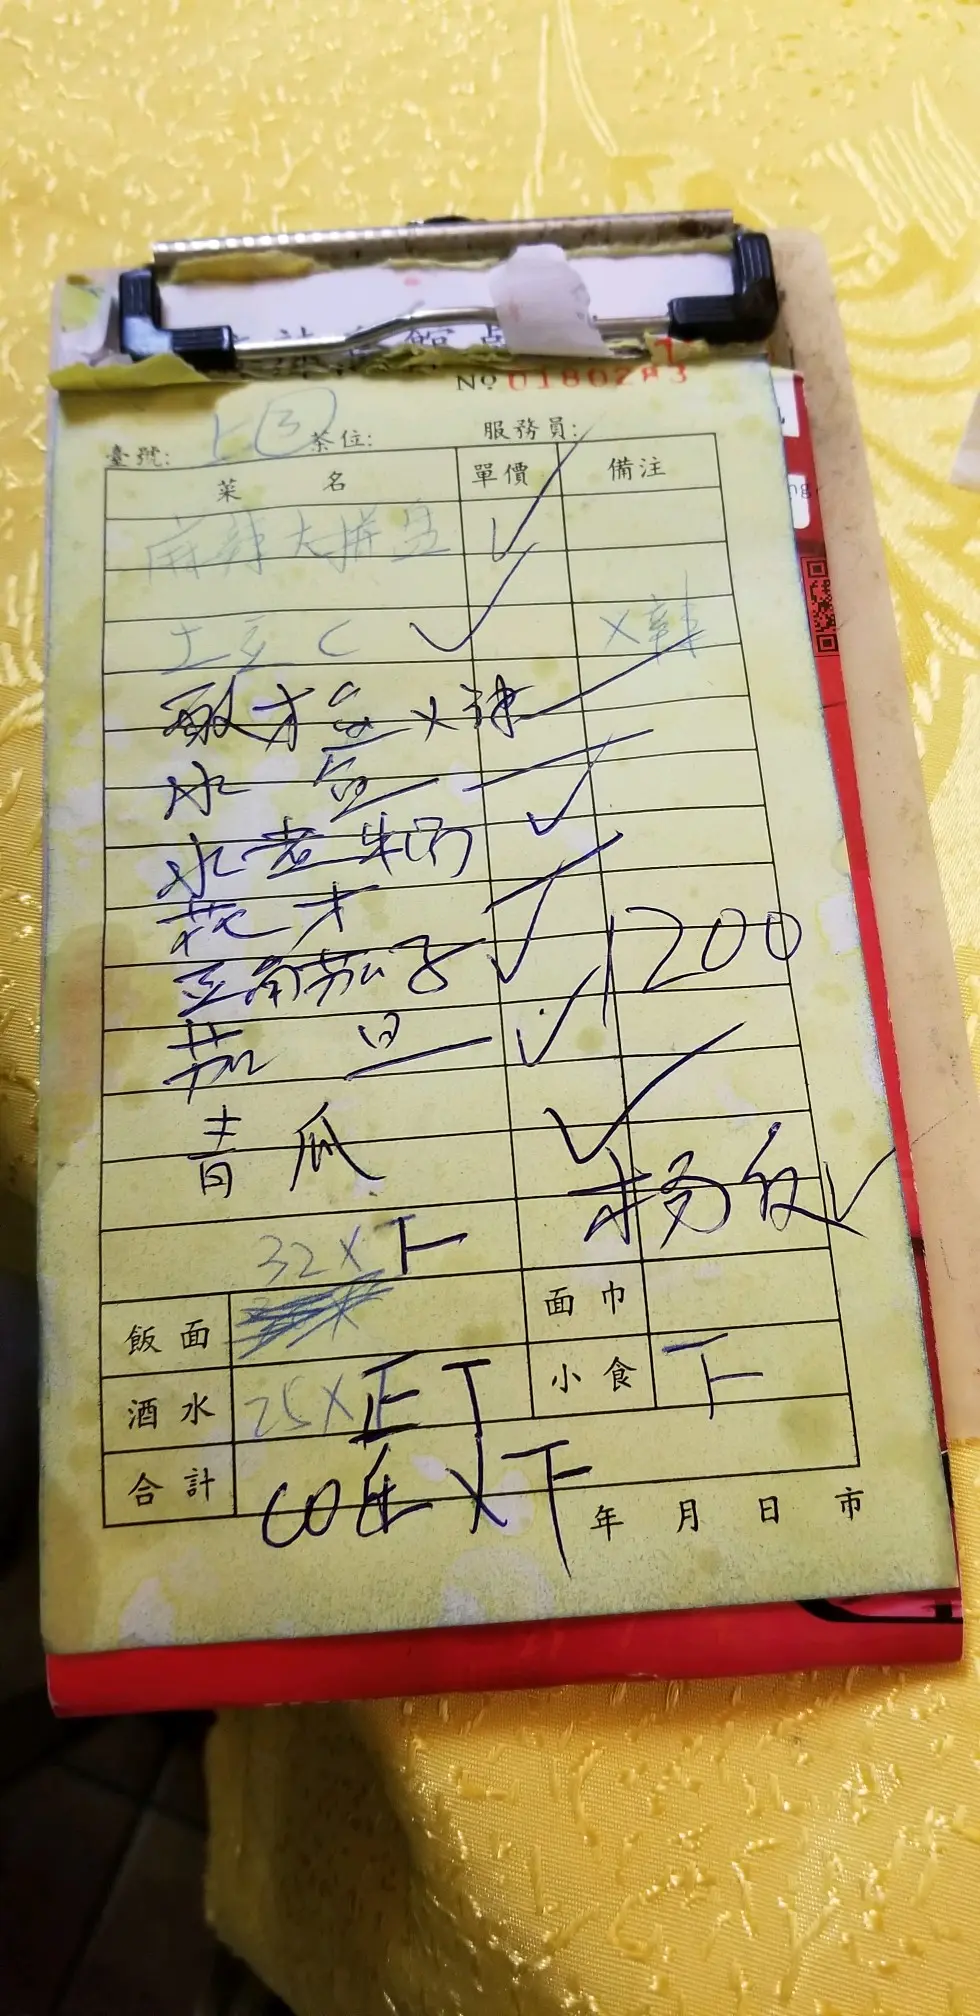 NO 0180283
臺號: 上③ 茶位: 服務員:
菜 名 單價 備注
麻辣大拼盆
土豆 C X辣
酸才鱼 X 辣
水
水煮牛肉
花才
豆角茄子
1200
茄 旦
青 瓜
32X下
飯面 面巾
酒水 25X正丅 小食 下
合計 X 下
年 月 日 市